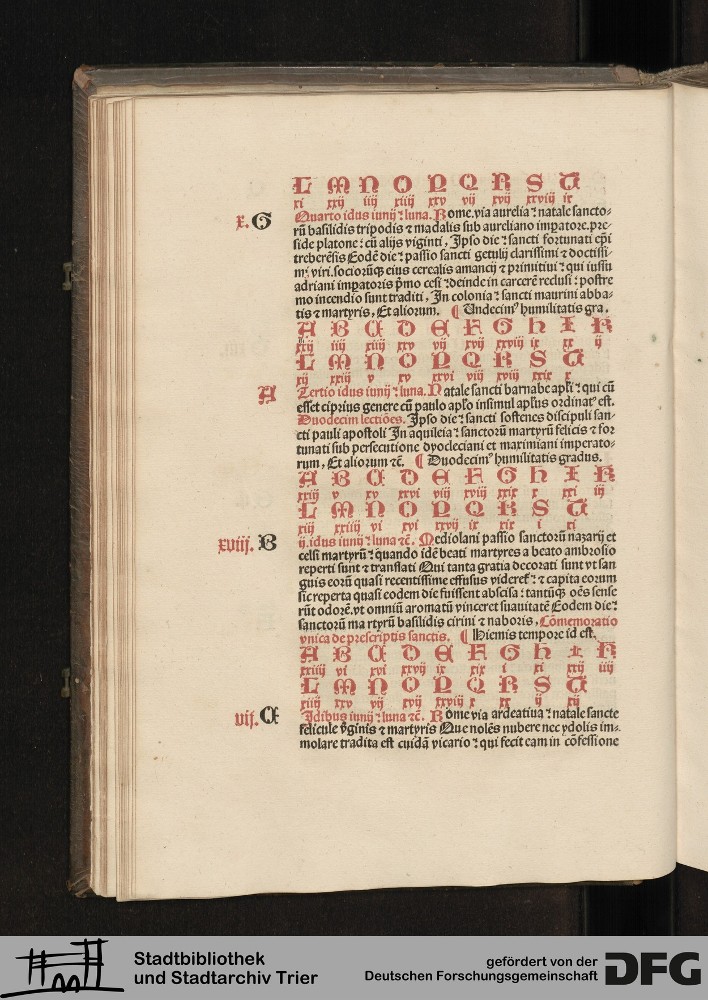 L M N O P Q R S T
xi xxij iiij xiiij xxv vij xvij xxviij ix
x. G Quarto idus iunij ⁊ luna. Rome. via aurelia ⁊ natale sancto-
rū basilidis tripodis ⁊ madalis sub aureliano impatore. pre-
side platone: cū alijs viginti, Ipso die ⁊ sancti fortunati epi
treberēsis Eodē die ⁊ passio sancti getulij clarissimi ⁊ doctissi-
mi viri. sociorūq eius cerealis amancij ⁊ primitiui ⁊ qui iussu
adriani impatoris pmo cesi ⁊ deinde in carcerē reclusi ⁊ postre
mo incendio sunt traditi, In colonia ⁊ sancti maurini abba-
tis ⁊ martyris, Et aliorum. ¶ Undecim⁹ humilitatis gra.
A B C D E F G H I K
xxij iiij xiiij xxv vij xvij xxviij ix xx ij
L M N O P Q R S T
xij xxiij v xv xxvi viij xviij xxix x
A Tertio idus iunij ⁊ luna. Natale sancti barnabe apli ⁊ qui cū
esset ciprius genere cū paulo aplo insimul aplus ordinat⁹ est.
Duodecim lectiōes. Ipso die ⁊ sancti sostenes discipuli san-
cti pauli apostoli In aquileia ⁊ sanctorū martyrū felicis ⁊ for
tunati sub persecutione dyocleciani et maximiani imperato-
rum, Et aliorum ⁊c̄. ¶ Duodecim⁹ humilitatis gradus.
A B C D E F G H I K
xxiij v xv xxvi viij xviij xxix x xxi iij
L M N O P Q R S T
xiij xxiiij vi xvi xxvij ix xix i xi
xviij. B ij. idus iunij ⁊ luna ⁊c̄. Mediolani passio sanctorū nazarij et
celsi martyrū ⁊ quando idē beati martyres a beato ambrosio
reperti sunt ⁊ translati Qui tanta gratia decorati sunt vt san
guis eorū quasi recentissime effusus videret ⁊ ⁊ capita eorum
sic reperta quasi eodem die fuissent abscisa ⁊ tantūq oēs sense
rūt odorē. vt omniū aromatū vinceret suauitatē Eodem die ⁊
sanctorū ma rtyrū basilidis cirini ⁊ naboris, Cōmemoratio
vnica de prescriptis sanctis. ¶ Hiemis tempore id est.
A B C D E F G H I K
xxiiij vi xvi xxvij ix xix i xi xxij iiij
L M N O P Q R S T
xiiij xxv vij xvij xxviij x xx ij xij
vij. C Idibus iunij ⁊ luna ⁊c̄. Rome via ardeatiua ⁊ natale sancte
fedicule vginis ⁊ martyris Que nolēs nubere nec ydolis im-
molare tradita est cuidā vicario ⁊ qui fecit eam in cōfessione
Stadtbibliothek
und Stadtarchiv Trier
gefördert von der
Deutschen Forschungsgemeinschaft
DFG